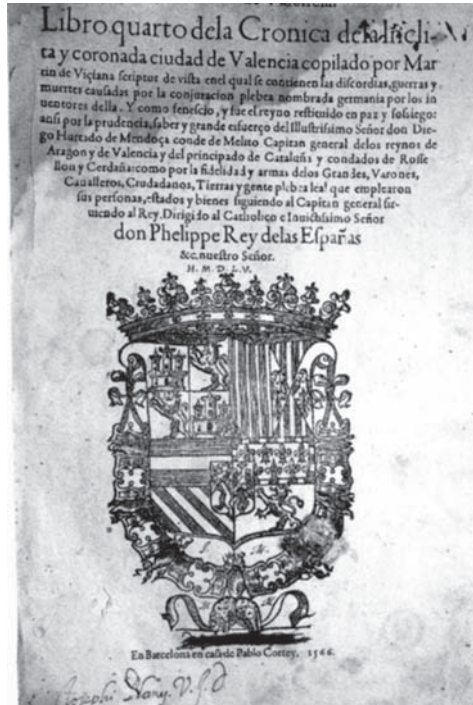 Libro quarto dela Cronica dela Incli-
ta y coronada ciudad de Valencia copilado por Mar
tin de Viçiana scriptor de vista enel qual se contienen las discordias, guerras y
muertes causadas por la conjuracion plebea nombrada germania por los in
uentores della. Y como fenescio, y fue el reyno restituido en paz y sosiego:
ansi por la prudencia, saber y grande esfuerço del Illustrissimo Señor don Die-
go Hurtado de Mendoça conde de Melito Capitan general delos reynos de
Aragon y de Valencia y del principado de Cataluña y condados de Rosse
llon y Cerdaña: como por la fidelidad y armas delos Grandes, Varones,
Caualleros, Ciudadanos, Tierras y gente plebea leal que emplearon
sus personas, estados y bienes siguiendo al Capitan general sir-
uiendo al Rey. Dirigido al Catholico e Inuictissimo Señor
don Phelippe Rey delas Españas
&c. nuestro Señor.
H. M. D. L. V.
I. M.
H M
En Barcelona en casa de Pablo Cortey. 1566.